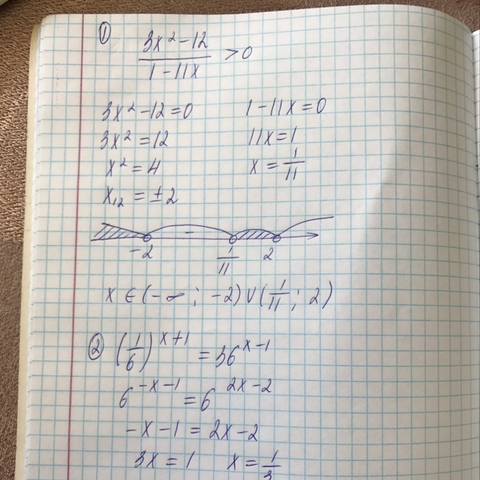 ① (3x² − 12)/(1 − 11x) > 0
3x² − 12 = 0    1 − 11x = 0
3x² = 12    11x = 1
x² = 4    x = 1/11
x₁₂ = ±2
−
−2    1/11    2
x ∈ (−∞; −2) ∪ (1/11; 2)
② (1/6)^(x+1) = 36^(x−1)
6^(−x−1) = 6^(2x−2)
−x − 1 = 2x − 2
3x = 1    x = 1/3